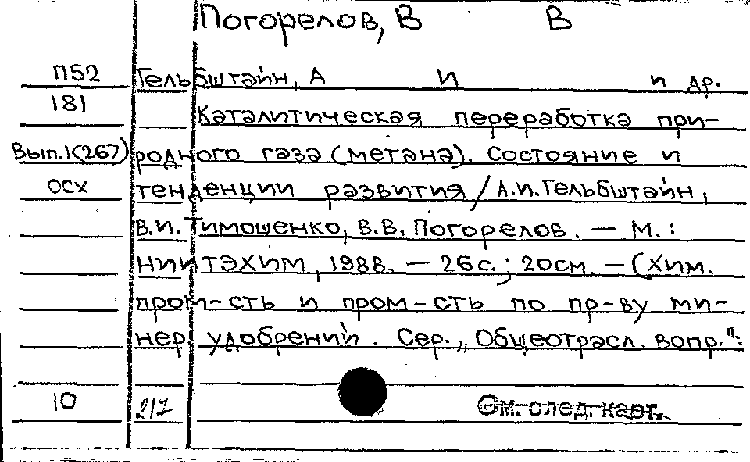 Погорелов, В В
П52 Гельбштейн, А И и др.
181 Каталитическая переработка при-
Вып.1(267) родного газа (метана). Состояние и
ОСХ тенденции развития / А.И. Гельбштейн,
В.И. Тимошенко, В.В. Погорелов. — М.:
НИИТЭХИМ, 1988. — 26с.; 20см. — (Хим.
пром-сть и пром-сть по пр-ву ми-
нер. удобрений. Сер. „Общеотрасл. вопр.":
10 217 См. след. карт.